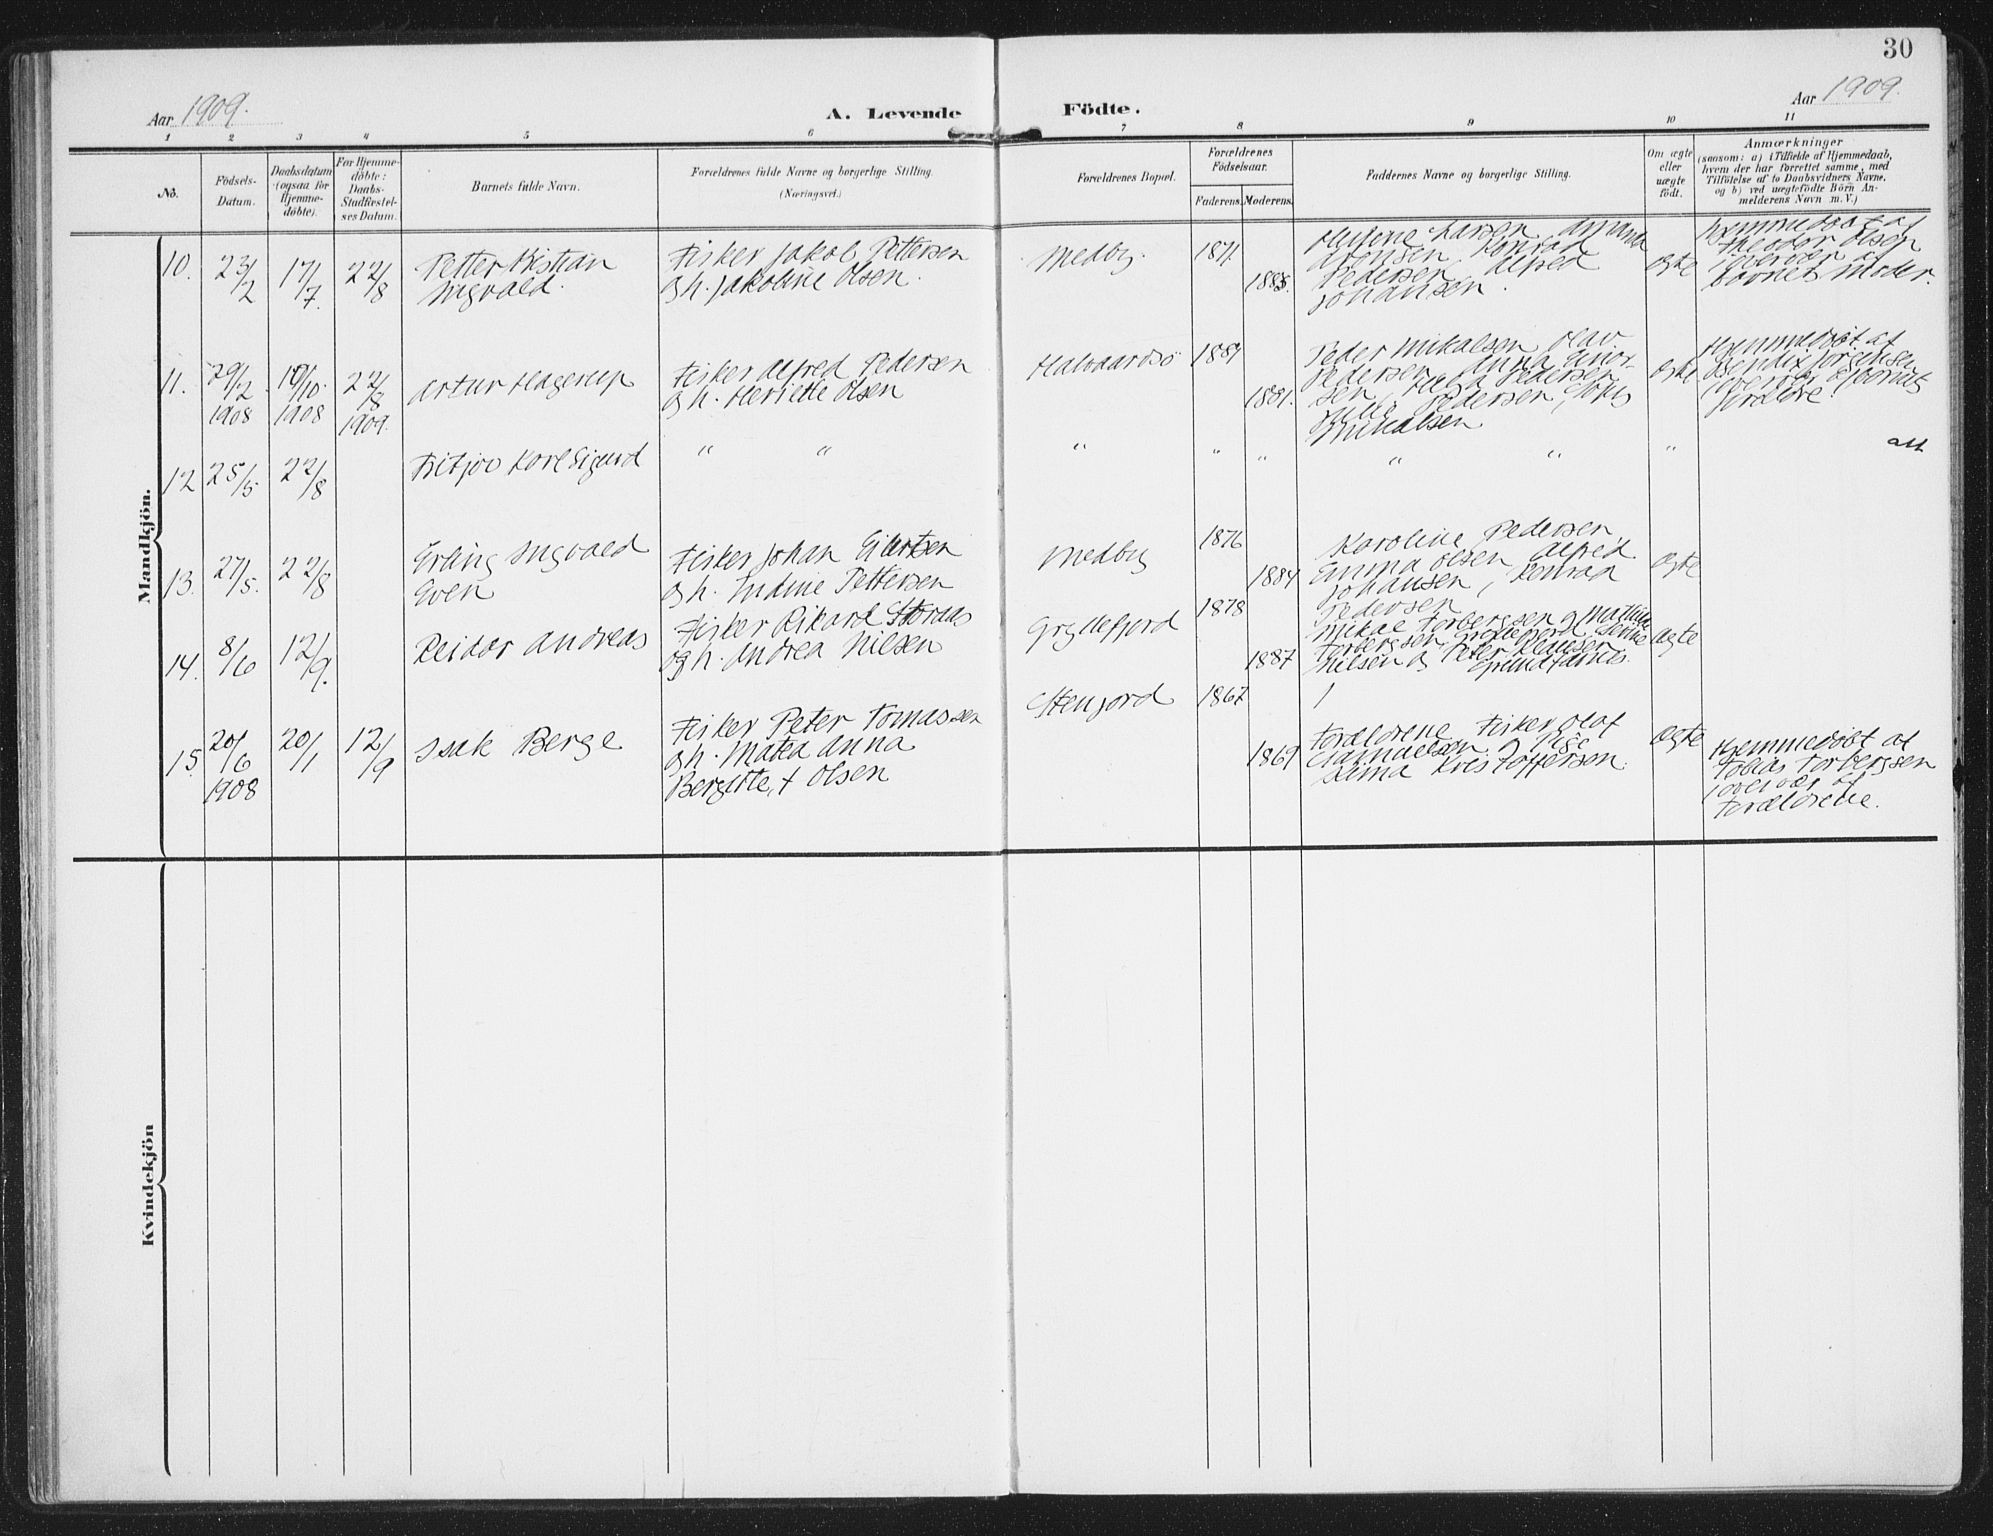 30
Aar 1909.
A. Levende Födte.
Aar 1909.
1 2 3 4 5 6 7 8 9 10 11
No.
Födsels-
Datum.
Daabsdatum
(ogsaa for
Hjemme-
döbte).
For Hjemme-
döbte:
Daabs-
Stadfæstel-
ses Datum.
Barnets fulde Navn.
Forældrenes fulde Navne og borgerlige Stilling.
(Næringsvei.)
Forældrenes Bopæl.
Forældrenes
Födselsaar.
Faderens. Moderens.
Faddernes Navne og borgerlige Stilling.
Om ægte
eller
uægte
födt.
Anmærkninger
(saasom: a) i Tilfælde af Hjemmedaab,
hvem der har forrettet samme, med
Tilföielse af to Daabsvidners Navne,
og b) ved uægtefödte Börn An-
melderens Navn m. V.)
Mandkjön.
10. 23/2 17/7. 22/8
Petter Kristian
Ingvald.
Fisker Jakob Pettersen
og h. Jakobine Olsen.
Medby.
1871
1885.
Larsen,
Konrad
Pedersen, Alfred
Johansen.
Ægte
Hjemmedøbt af
Theodor Olsen
i overvær af
barnets moder.
11. 29/12 1908 10/10. 1908 22/8 1909.
Artur Hagerup
Fisker Alfred Pedersen
og h. Henriette Olsen
Halvaardsø
1881.
Peder Mikalsen, Olav
Pedersen, Anna Einar-
sen, Pedersen,
Pedersen,
Mikalsen
Ægte
Hjemmedøbt af
Bendix
i overvær af barnets
forældre.
12 25/5. 22/8
Fritjov Karl Sigurd
" " " " " " " "
att
13. 27/5. 22/8
Erling Ingvald
Even
Fisker Johan Eilertsen
og h. Indine Pettersen
Medby
1876
1884
Karoline Pedersen,
Emma Olsen, Alfred
Johansen, Konrad
Pedersen
Ægte
14. 8/6 12/9.
Reidar Andreas
Fisker Rikard Storaas
og h. Andrea Nilsen
Gryllefjord
1878
1887
Mikal Torbergsen og Mathilde
Torbergsen,
Nilsen og Peter Klausen
Ægte
15. 20/6 1908 20/1 12/9
Isak Berge
Fisker Peter Tomassen
og h. Matea Anna
Bergitte, f Olsen
Stenfjord
1867
1869
Forældrene, Fisker Olaf
Samuelsen og Pige
Kristoffersen.
Ægte
Hjemmedøbt af
Tobias Torbergsen
i overvær af
Forældrene.
Kvindekjön